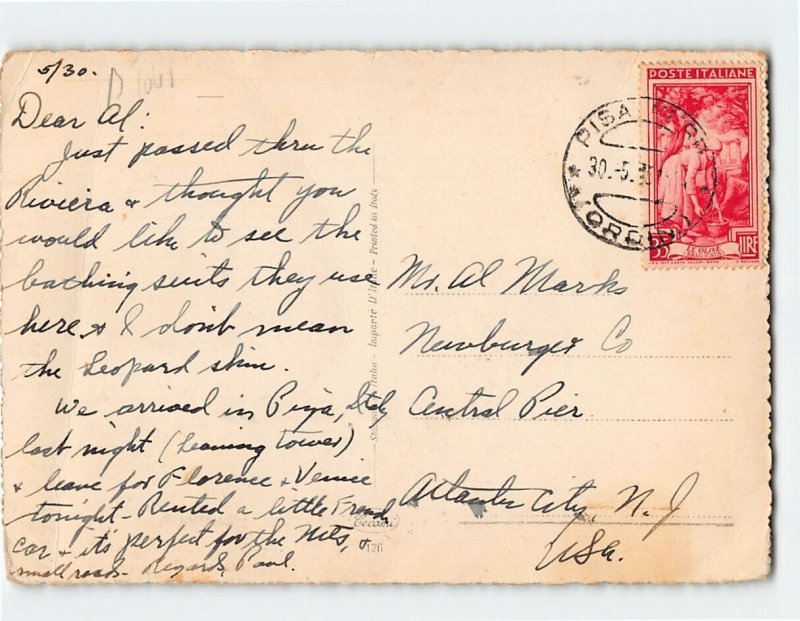 5/30.
Dear Al:
Just passed thru the
Riviera & thought you
would like to see the
bathing suits they use
here & I don't mean
the Leopard skin.
We arrived in Piza, Italy
last night (Leaning tower)
& leave for Florence & Venice
tonight - Rented a little French
car & it's perfect for the Mts, &
small roads - Regards, Paul.
Importé D'Italie - Printed in Italy
126
POSTE ITALIANE
PISA
30.-5.
LIRE
Mr. Al Marks
Newburger Co
Central Pier
Atlantic City, N. J
USA.